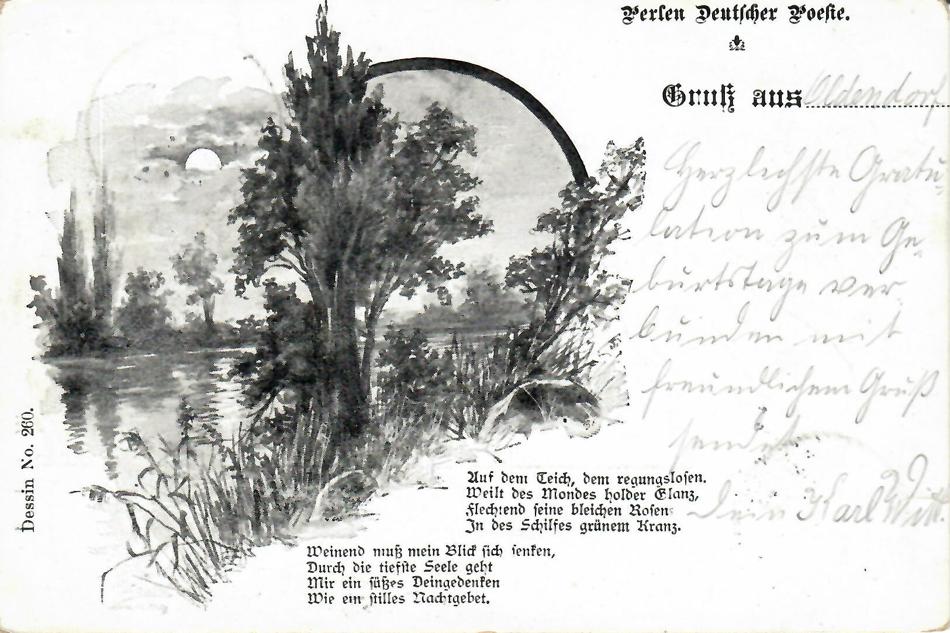 Perlen Deutscher Poesie.
Gruß aus Oldendorf
Herzlichste Gratu-
lation zum Ge-
burtstage ver
bunden mit
freundlichem Gruß
sendet
Dein Karl
Dessin No. 260.
Auf dem Teich, dem regungslosen.
Weilt des Mondes holder Glanz,
Flechtend seine bleichen Rosen
In des Schilfes grünem Kranz.
Weinend muß mein Blick sich senken,
Durch die tiefste Seele geht
Mir ein süßes Deingedenken
Wie ein stilles Nachtgebet.